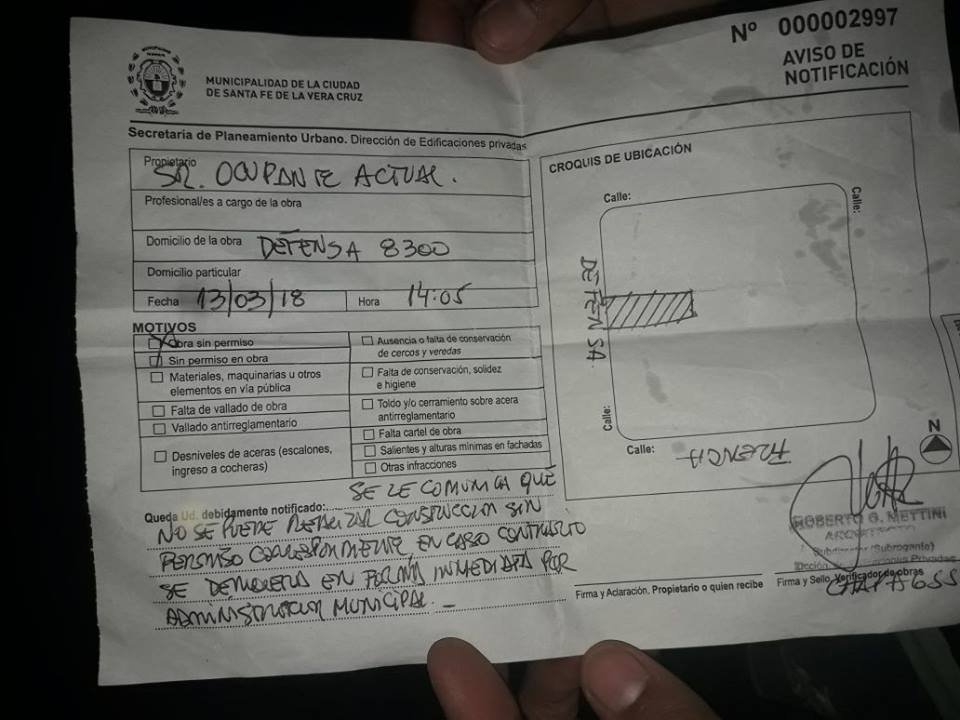 Nº 000002997
AVISO DE
NOTIFICACIÓN
MUNICIPALIDAD DE LA CIUDAD
DE SANTA FE DE LA VERA CRUZ
Secretaría de Planeamiento Urbano. Dirección de Edificaciones privadas
Propietario SR. OCUPANTE ACTUAL.
Profesional/es a cargo de la obra
Domicilio de la obra DEFENSA 8300
Domicilio particular
Fecha 13/03/18 Hora 14:05
MOTIVOS
Obra sin permiso
Sin permiso en obra
Materiales, maquinarias u otros
elementos en vía pública
Falta de vallado de obra
Vallado antirreglamentario
Desniveles de aceras (escalones,
ingreso a cocheras)
Ausencia o falta de conservación
de cercos y veredas
Falta de conservación, solidez
e higiene
Toldo y/o cerramiento sobre acera
antirreglamentario
Falta cartel de obra
Salientes y alturas mínimas en fachadas
Otras infracciones
Queda Ud. debidamente notificado: SE LE COMUNICA QUE
NO SE PUEDE REALIZAR CONSTRUCCION SIN
PERMISO CORRESPONDIENTE, EN CASO CONTRARIO
SE DEMOLERA EN FORMA INMEDIATA POR
ADMINISTRACION MUNICIPAL.
CROQUIS DE UBICACIÓN
Calle:
Calle:
DEFENSA
Calle:
Calle:
N
ROBERTO G. METTINI
Subdirector (Subrogante)
Firma y Aclaración. Propietario o quien recibe
Firma y Sello. Verificador de obras